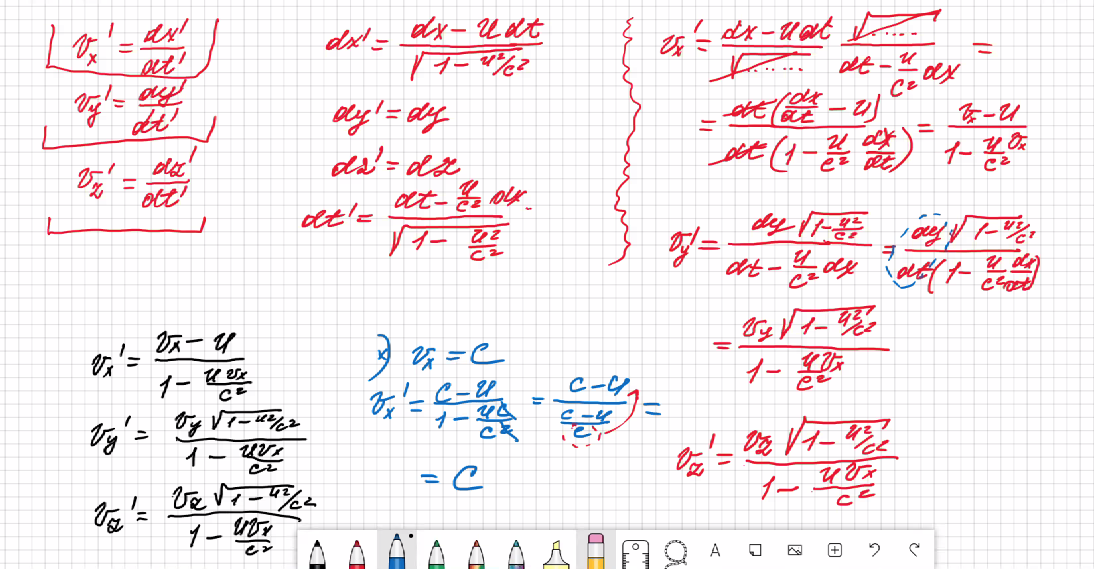 v_x' = dx'/dt'
v_y' = dy'/dt'
v_z' = dz'/dt'
dx' = (dx - u dt)/√(1 - u²/c²)
dy' = dy
dz' = dz
dt' = (dt - u/c² dx)/√(1 - u²/c²)
v_x' = (dx - u dt)/√..... √...../(dt - u/c² dx) =
= dt(dx/dt - u)/dt(1 - u/c² dx/dt) = (v_x - u)/(1 - u/c² v_x)
v_y' = dy √(1 - u²/c²)/(dt - u/c² dx) = dy √(1 - u²/c²)/dt(1 - u/c² dx/dt)
= v_y √(1 - u²/c²)/(1 - u v_x/c²)
v_z' = v_z √(1 - u²/c²)/(1 - u v_x/c²)
v_x' = (v_x - u)/(1 - u v_x/c²)
v_y' = v_y √(1 - u²/c²)/(1 - u v_x/c²)
v_z' = v_z √(1 - u²/c²)/(1 - u v_x/c²)
*) v_x = c
v_x' = (c - u)/(1 - uc/c²) = (c - u)/((c - u)/c) =
= c
A